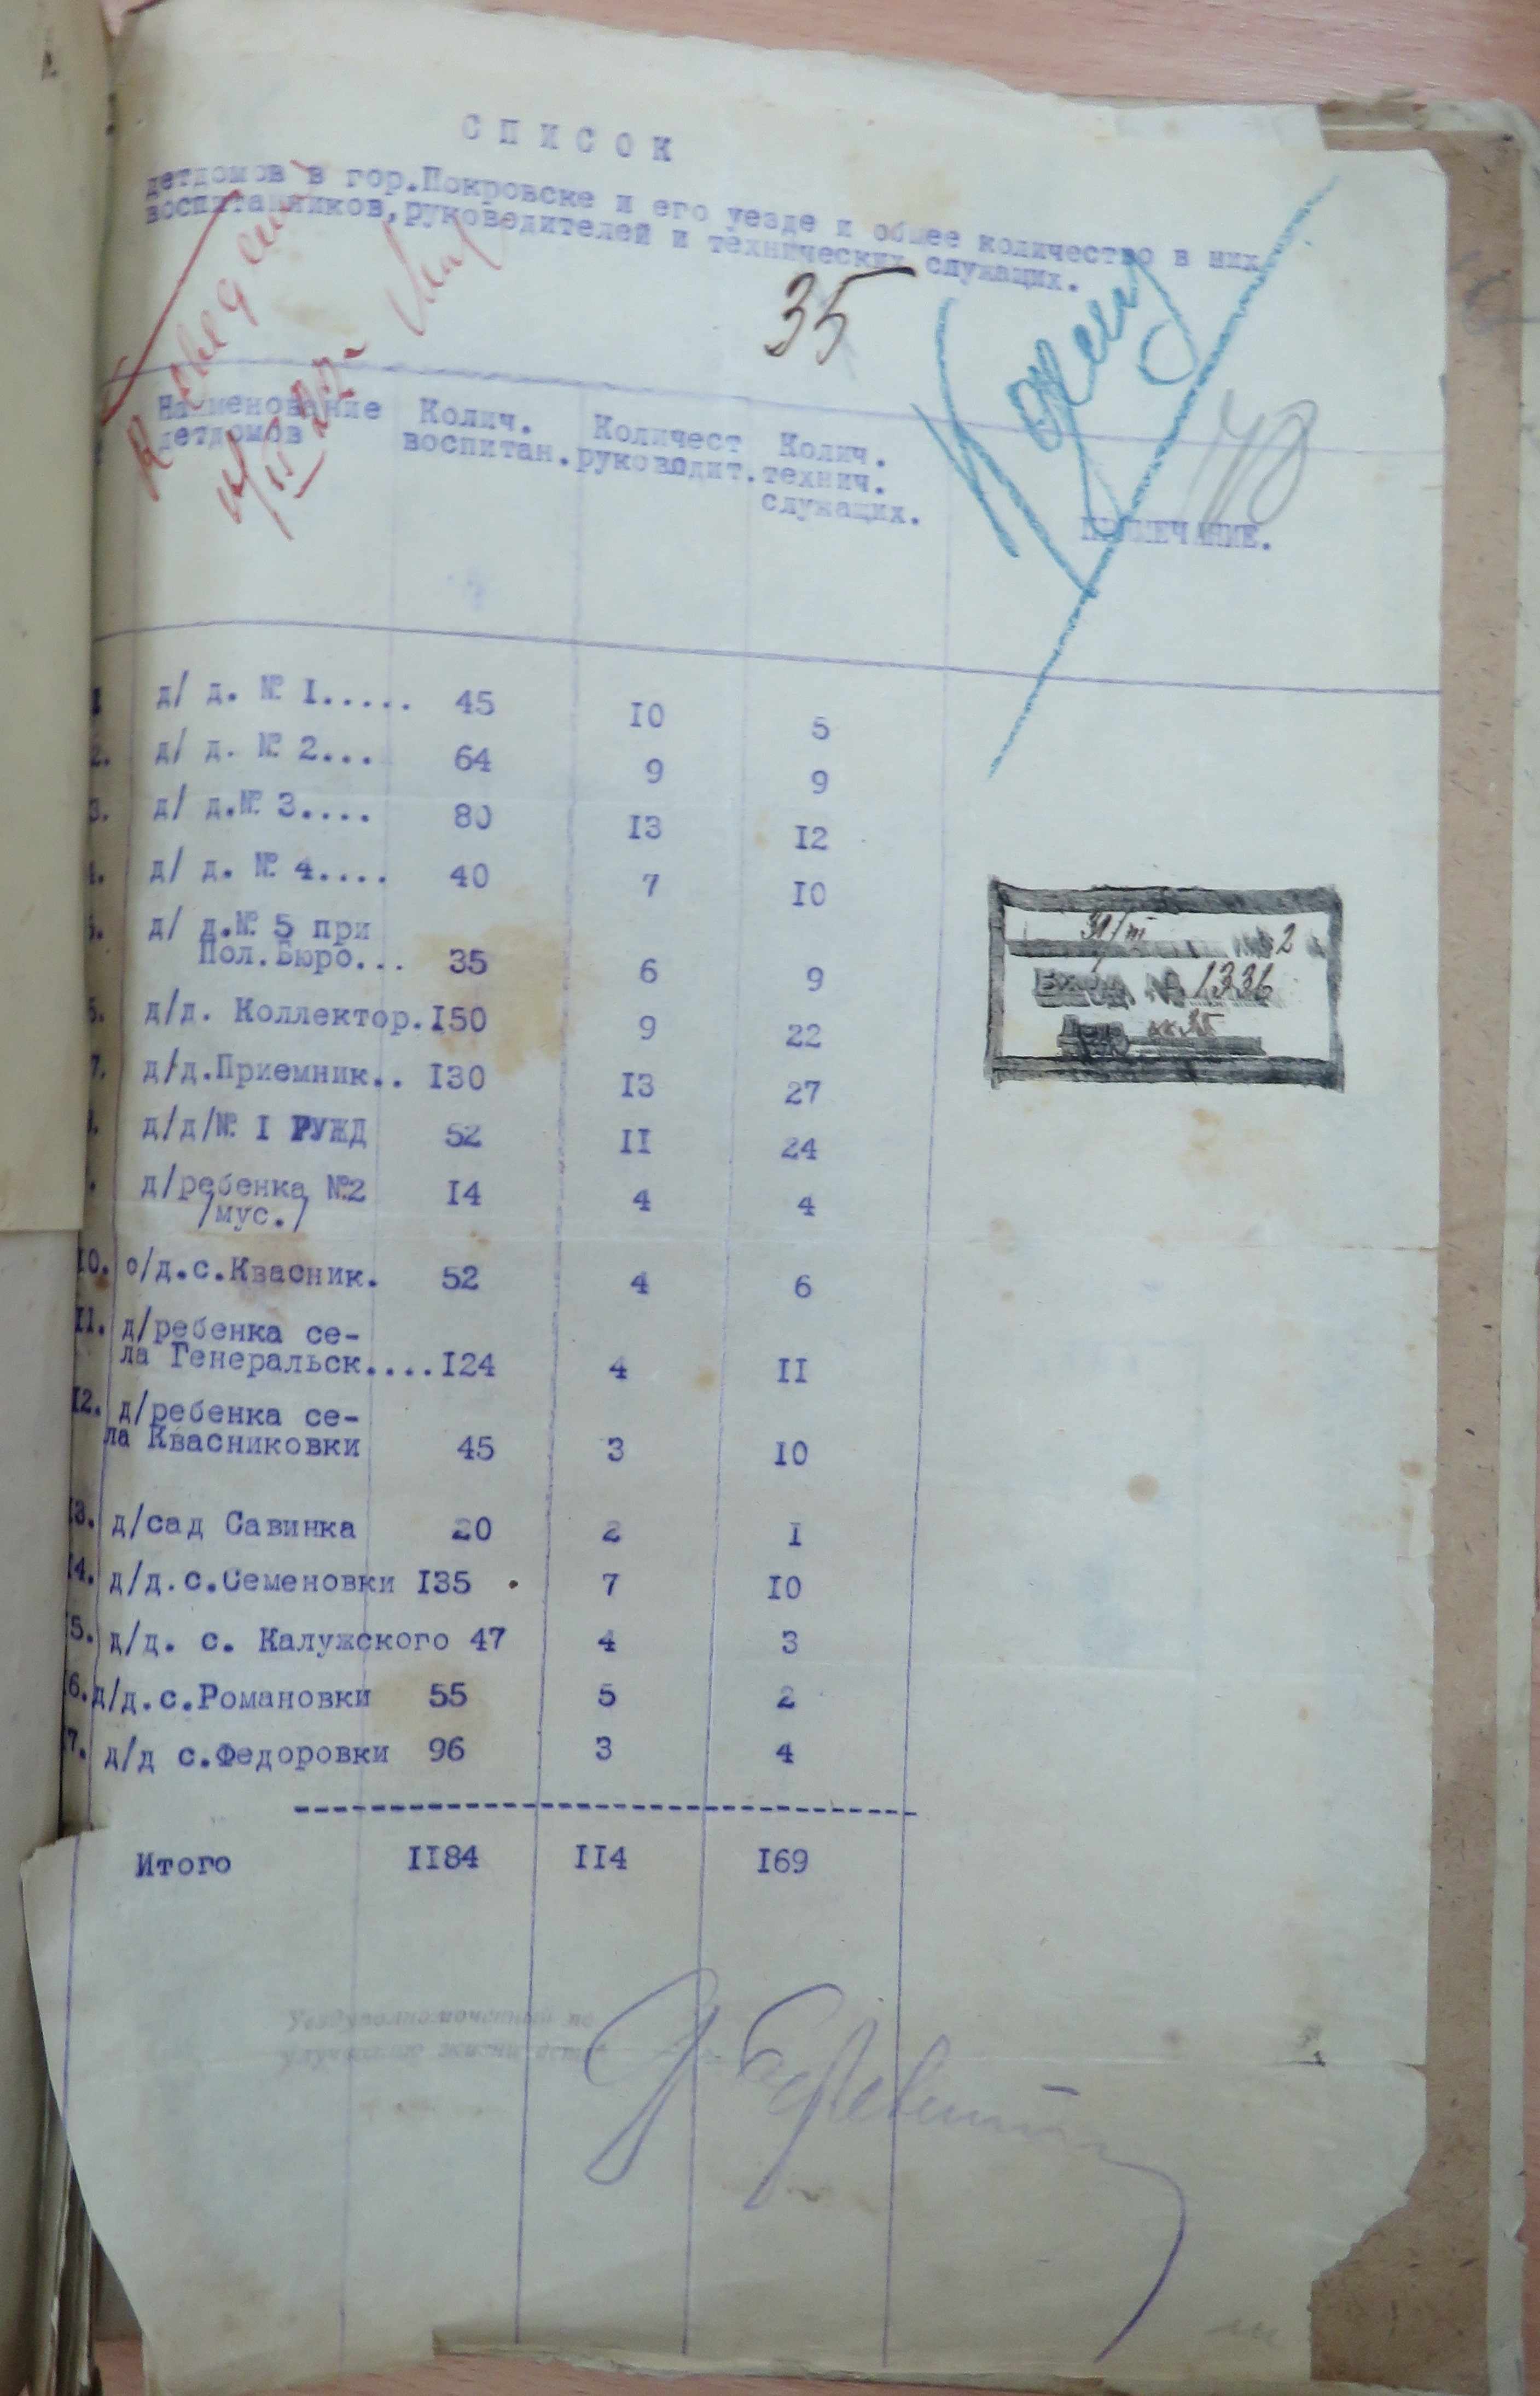 СПИСОК
детдомов в гор.Покровске и его уезде и общее количество в них
воспитанников,руководителей и технических служащих.
35
Наименование детдомов Колич. воспитан. Количест руководит. Колич. технич. служащих. ПРИМЕЧАНИЕ.
1 д/ д. № I..... 45 IO 5
2. д/ д. № 2... 64 9 9
3. д/ д.№ 3.... 80 I3 I2
4. д/ д. № 4.... 40 7 IO
5. д/ д.№ 5 при
Пол.Бюро... 35 6 9
6. д/д. Коллектор.I50 9 22
7. д/д.Приемник.. I30 I3 27
д/д/№ I РУЖД 52 II 24
д/ребенка №2 I4 4 4
/мус./
IO. о/д.с.Квасник. 52 4 6
II. д/ребенка се-
ла Генеральск....I24 4 II
I2. д/ребенка се-
ла Квасниковки 45 3 IO
I3. д/сад Савинка 20 2 I
I4. д/д.с.Семеновки I35 7 IO
5. д/д. с. Калужского 47 4 3
6. д/д.с.Романовки 55 5 2
7. д/д с.Федоровки 96 3 4
Итого II84 II4 I69
31/III 2
№ 1336
35
Уездуполномоченный по
улучшению жизни детей